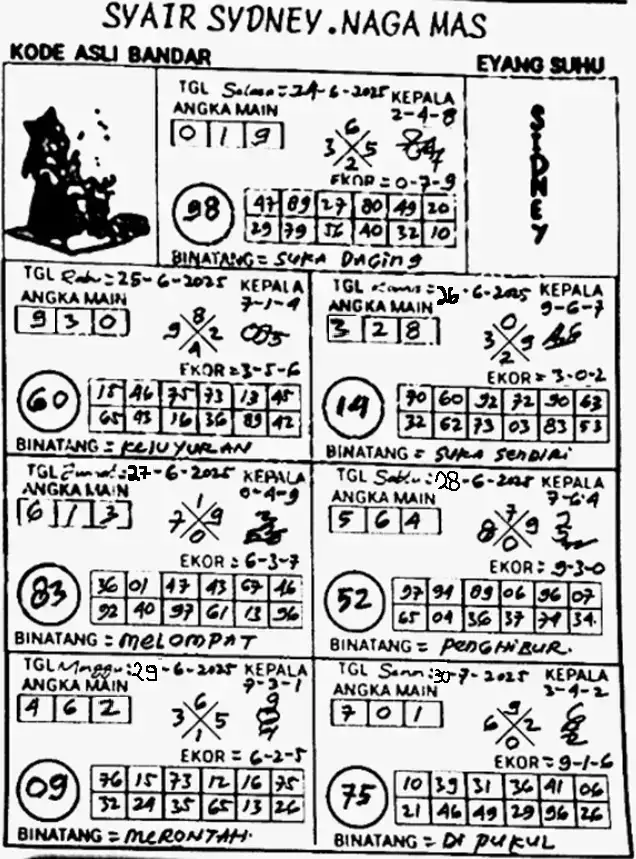 SYAIR SYDNEY.NAGA MAS
KODE ASLI BANDAR
EYANG SUHU
SIDNEY
TGL Selasa = 24-6-2025 KEPALA
ANGKA MAIN 2-4-8
0 1 9
6
3 5
2
EKOR = 0-7-9
98
47 89 27 80 49 20
29 79 56 40 32 10
BINATANG = SUKA DAGING
TGL Rabu = 25-6-2025 KEPALA
ANGKA MAIN 7-1-4
9 3 0
8
9 2
4
EKOR = 3-5-6
60
15 46 75 73 13 45
65 93 16 36 89 42
BINATANG = KEJUYURAN
TGL Kamis = 26-6-2025 KEPALA
ANGKA MAIN 9-6-7
3 2 8
0
3 9
2
EKOR = 3-0-2
14
90 60 92 72 90 63
32 62 73 03 83 53
BINATANG = SUKA SENDIRI
TGL Jumat : 27-6-2025 KEPALA
ANGKA MAIN 0-4-9
6 1 3
1
7 9
0
EKOR : 6-3-7
83
36 01 47 43 67 46
92 40 97 61 13 96
BINATANG = MELOMPAT
TGL Sabtu : 28-6-2025 KEPALA
ANGKA MAIN 7-6-4
5 6 4
7
8 9
0
EKOR : 9-3-0
52
97 94 09 06 96 07
65 04 36 37 74 34.
BINATANG = PENGHIBUR.
TGL Minggu : 29-6-2025 KEPALA
ANGKA MAIN 7-3-1
4 6 2
6
3 5
1
EKOR = 6-2-5
09
76 15 73 12 16 75
32 24 35 65 13 26
BINATANG = MERONTAH.
TGL Senin : 30-7-2025 KEPALA
ANGKA MAIN 3-4-2
7 0 1
9
6 2
0
EKOR = 9-1-6
75
10 39 31 36 41 06
21 46 49 29 96 26
BINATANG = DI PUKUL